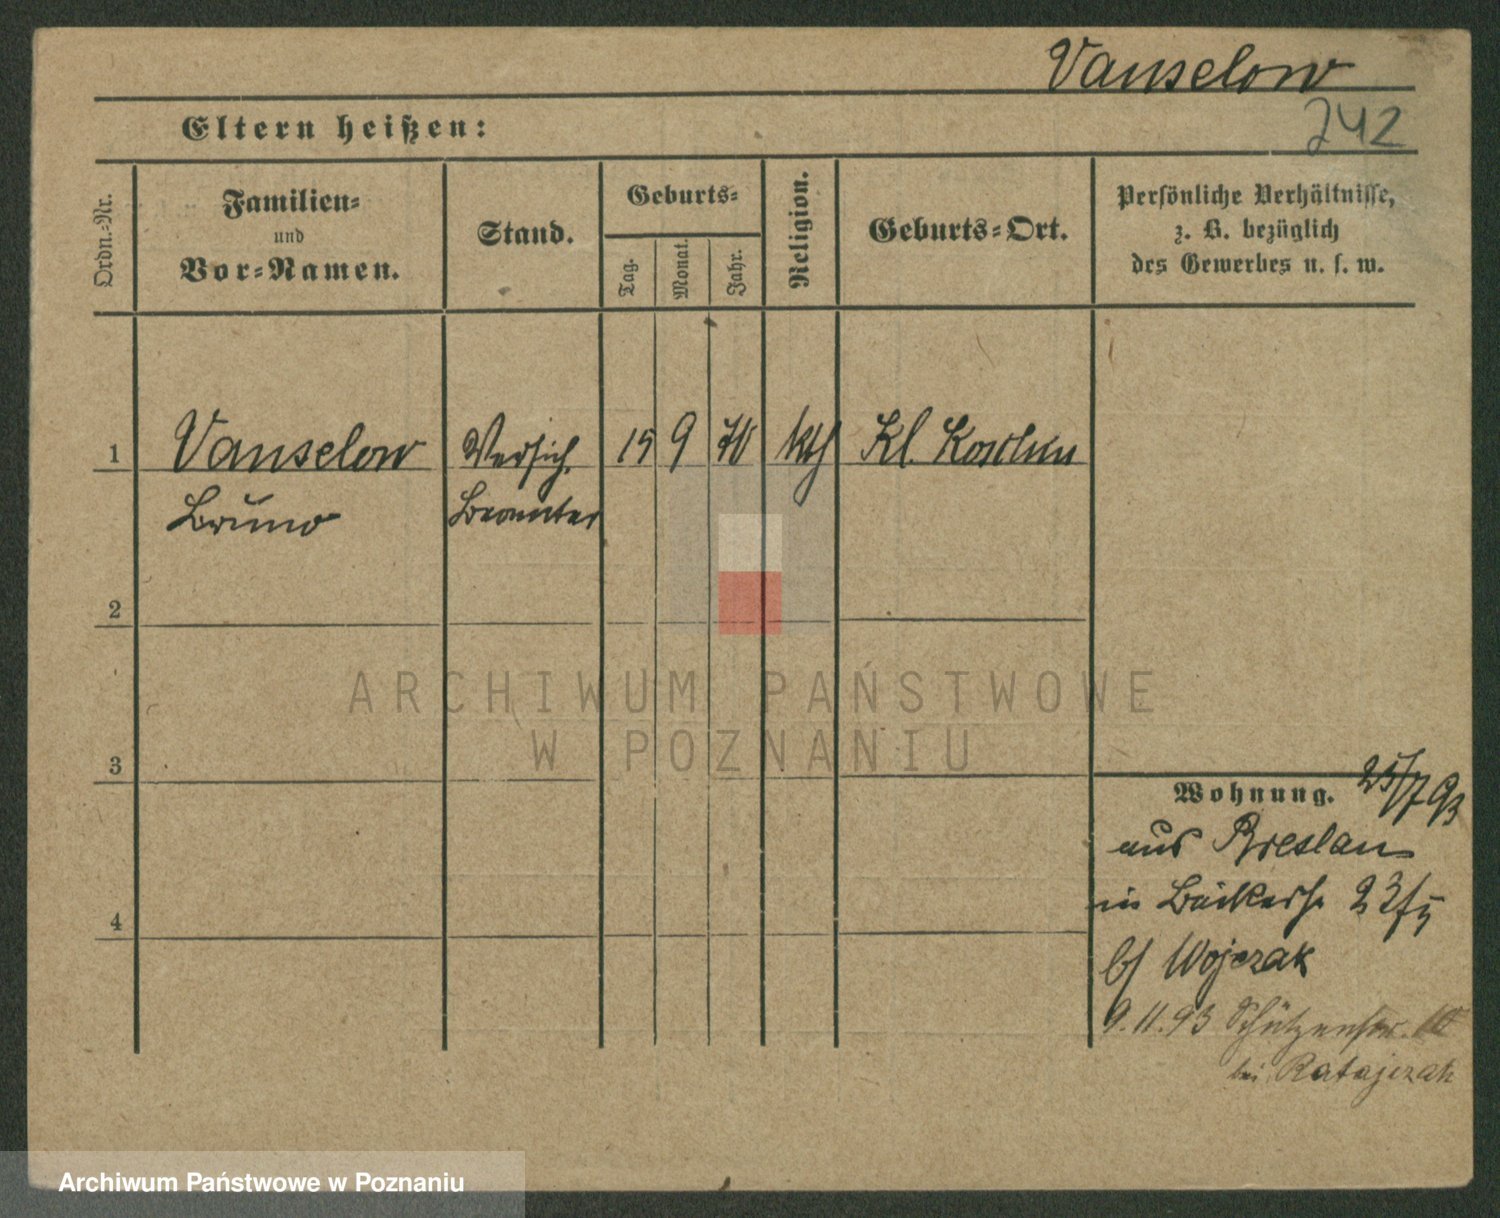 Vanselow
242
Eltern heißen:
Ordn.-Nr.
Familien-
und
Vor-Namen.
Stand.
Geburts-
Tag.
Monat.
Jahr.
Religion.
Geburts-Ort.
Persönliche Verhältnisse,
z. B. bezüglich
des Gewerbes u. s. w.
1 Vanselow Versich. 15 9 70 kth Kl.
Bruno Beamter
2
3
4
Wohnung. 25/7 93
aus Breslau
in Bäckerstr 23/
b/ Wojczak
9.11.93 Schützenstr.
bei Ratajczak
ARCHIWUM PAŃSTWOWE
W POZNANIU
Archiwum Państwowe w Poznaniu